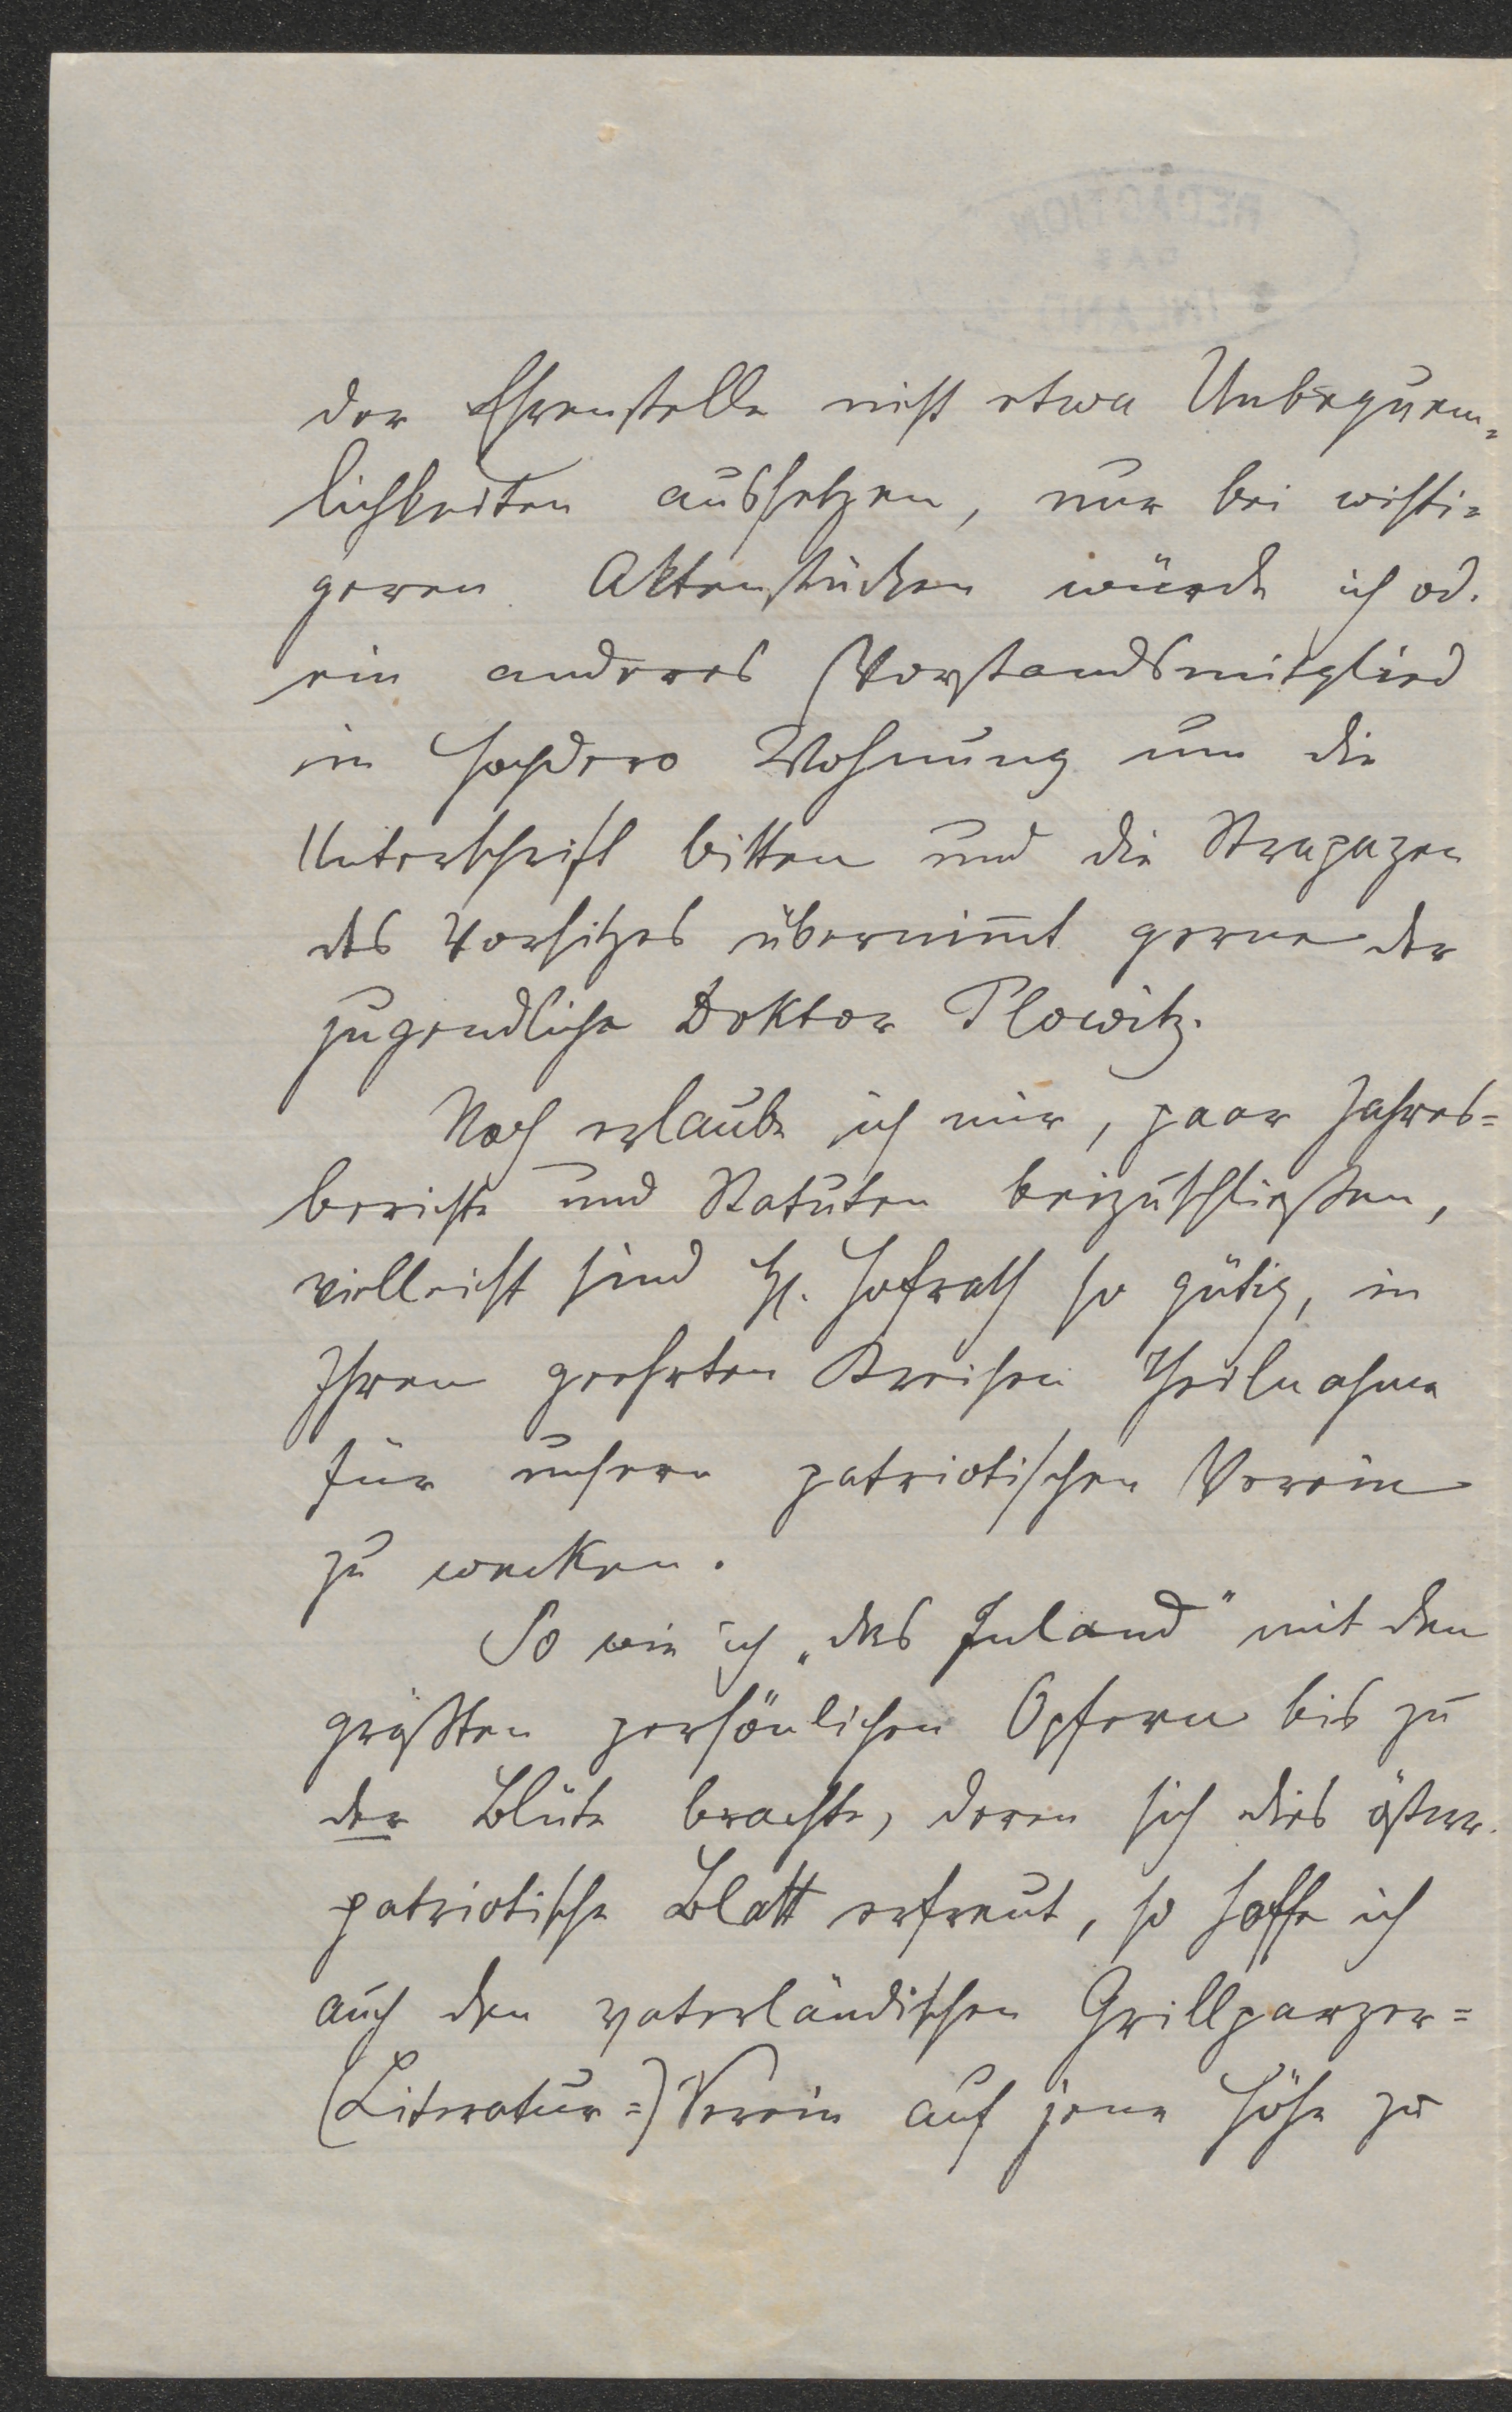 der Ehrenstelle nicht etwa Unbequem=
lichkeiten aussetzen, nur bei wichti=
geren Aktenstücken würde ich od.
ein anderes Vorstandsmitglied
in hochdero Wohnung um die
Unterschrift bitten und die Strapazen
des Vorsitzes übernim̄t gerne der
jugendliche Doktor Plowitz.
Noch erlaube ich mir, paar Jahres=
berichte und Statuten beizuschließen,
vielleicht sind H. Hofrath so gütig, in
Ihren geehrten Kreisen Theilnahme
für unsern patriotischen Verein
zu wecken.
So wie ich „das Inland" mit den
größten persönlichen Opfern bis zu
der Blüte brachte, deren sich dies österr.
patriotische Blatt erfreut, so hoffe ich
auch den vaterländischen Grillparzer=
(Literatur=) Verein auf jene Höhe zu
REDACTION
DAS
INLAND